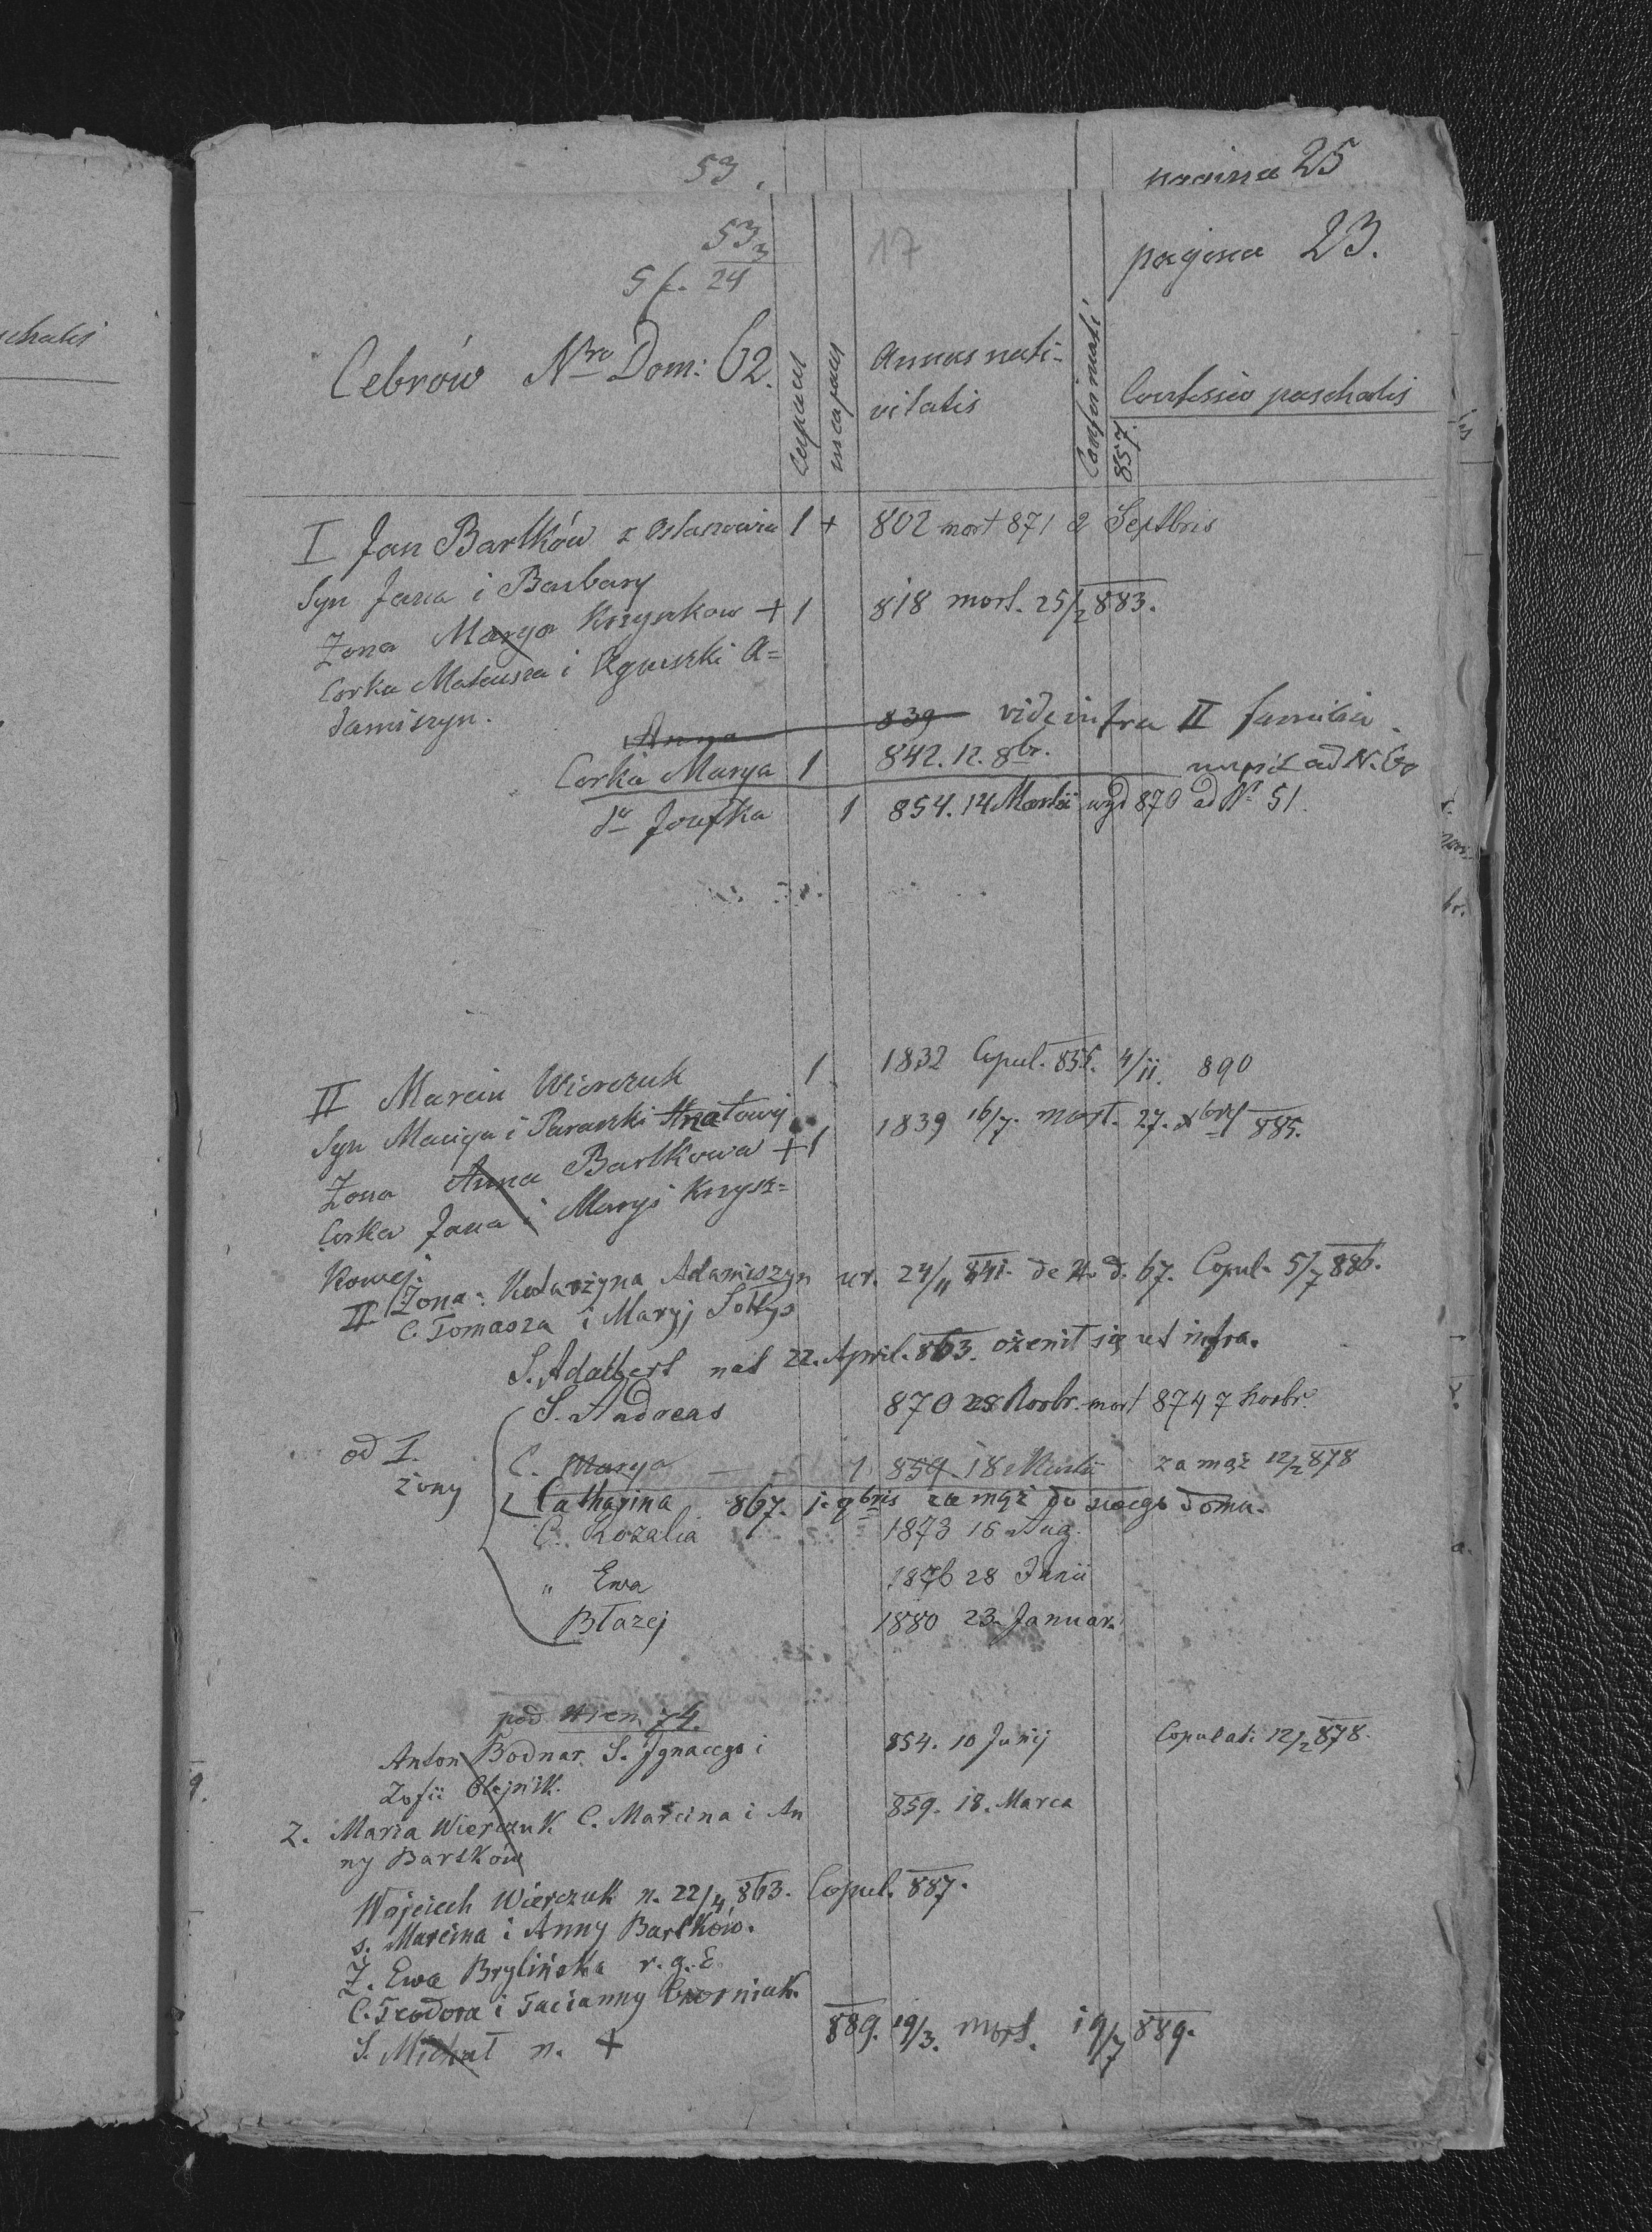 53.
pagina 25
53
3
5 f. 24
17
pagina 23.
Cebrów Nro Dom: 62.
capaces
incapaces
Annus nati-
vitatis
Confirmati
857.
Confessio paschalis
I Jan Bartków z 1 + 802 mort 871 2 Septbris
Syn Jana i Barbary
Żona Marya Krzyszkow + 1 818 mort. 25/2 883.
Corka Mateusza i Agnieszki A=
damiszyn.
Anna 839 vide infra II familia
Corka Marya 1 842. 12. 8br. nupsit ad N.
do Jozefka 1 854. 14 Martii wyd 870 ad No 51.
II Marcin Wierczuk 1 1832 Copul. 855. 4/11. 890
Syn Macieja i Paraszki Hnatowej
Żona Anna Bartkowa + 1 1839 16/7. mort. 27. Xbris 885.
Corka Jana i Maryi Krzysz=
kowej.
II Żona: Katarżyna Adamiszyn ur. 24/11 841. de N. d. 67. Copul. 5/7 886.
C. Tomasza i Maryj Sołtys
S. Adalbert nat 22. April. 863. ożenił się ut infra.
S. Andreas 870 28 Novbr. mort 874 7 Novbr.
od I.
żony
C. Marya — 1 859. 18 Martii za mąż 12/2 878
Catharina 867. 1. 9bris za mąż do swego domu.
C. Rozalia 1873 16 Aug.
" Ewa 1876 28 Junii
Błażej 1880 23. Januar.
pod Nrem 74.
Anton Bodnar. S. Ignacego i 854. 10 Junij Copulati 12/2 878.
Zofii Olejnik.
Ż. Maria Wierczuk C. Marcina i An 859. 18. Marca
ny Bartków
Wojciech Wierczuk n. 22/4 863. Copul. 887.
s. Marcina i Anny Bartków.
Ż. Ewa Brylińska r. g. E.
C. Teodora i Tacianny Czorniak.
S. Michał n. + 889. 19/3. mort. 19/7 889.